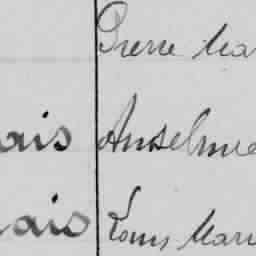 Pierre Mar
ais Anselme
ais Louis Mari